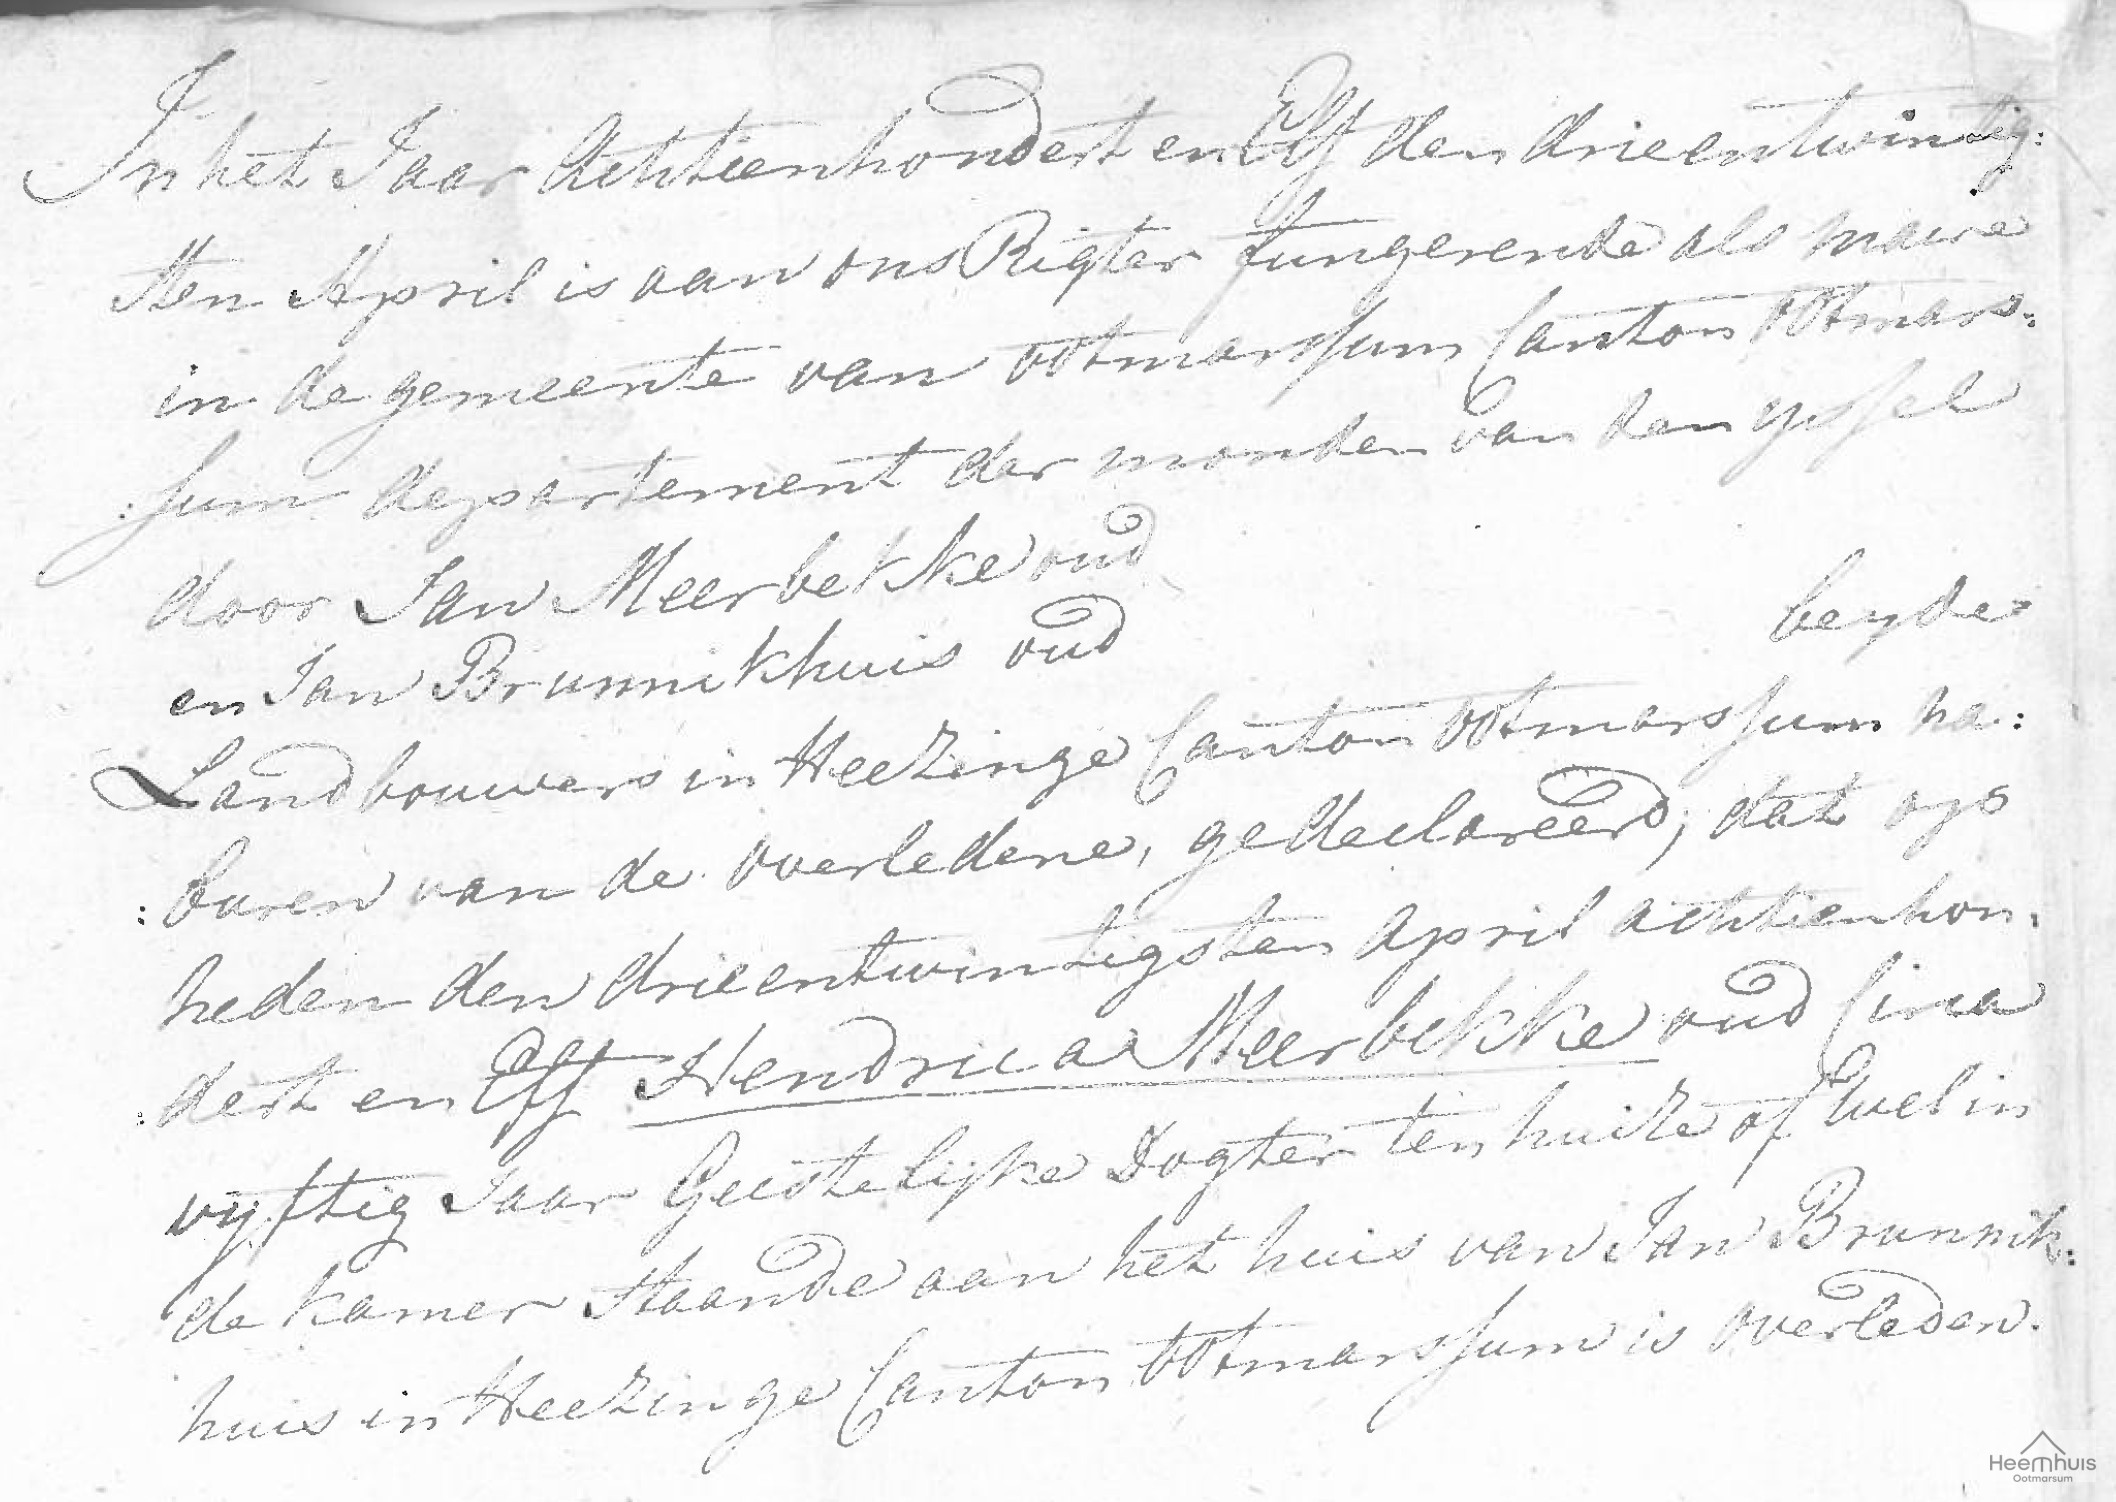 In het Jaar Achtienhondert en Elf den drieentwintig:
sten April is aan ons Rigter fungerende als maire
in de gemeente van Ootmarssum Canton Ootmars:
:sum departement der monden van den yssel
door Jan Meerbekke oud
en Jan Brunnikhuis oud beyde
Landbouwers in Heezinge Canton Ootmarssum na:
:buren van de overledene, gedeclareerd, dat op
heden den drieentwintigsten April achtienhon:
:dert en Elf Hendrica Meerbekke oud Circa
vyftig Jaar Geestelyke Dogter ten huize ofwel in
de kamer staande aan het huis van Jan Brunnik:
huis in Heezinge Canton Ootmarssum is overleden.
Heemhuis
Ootmarsum